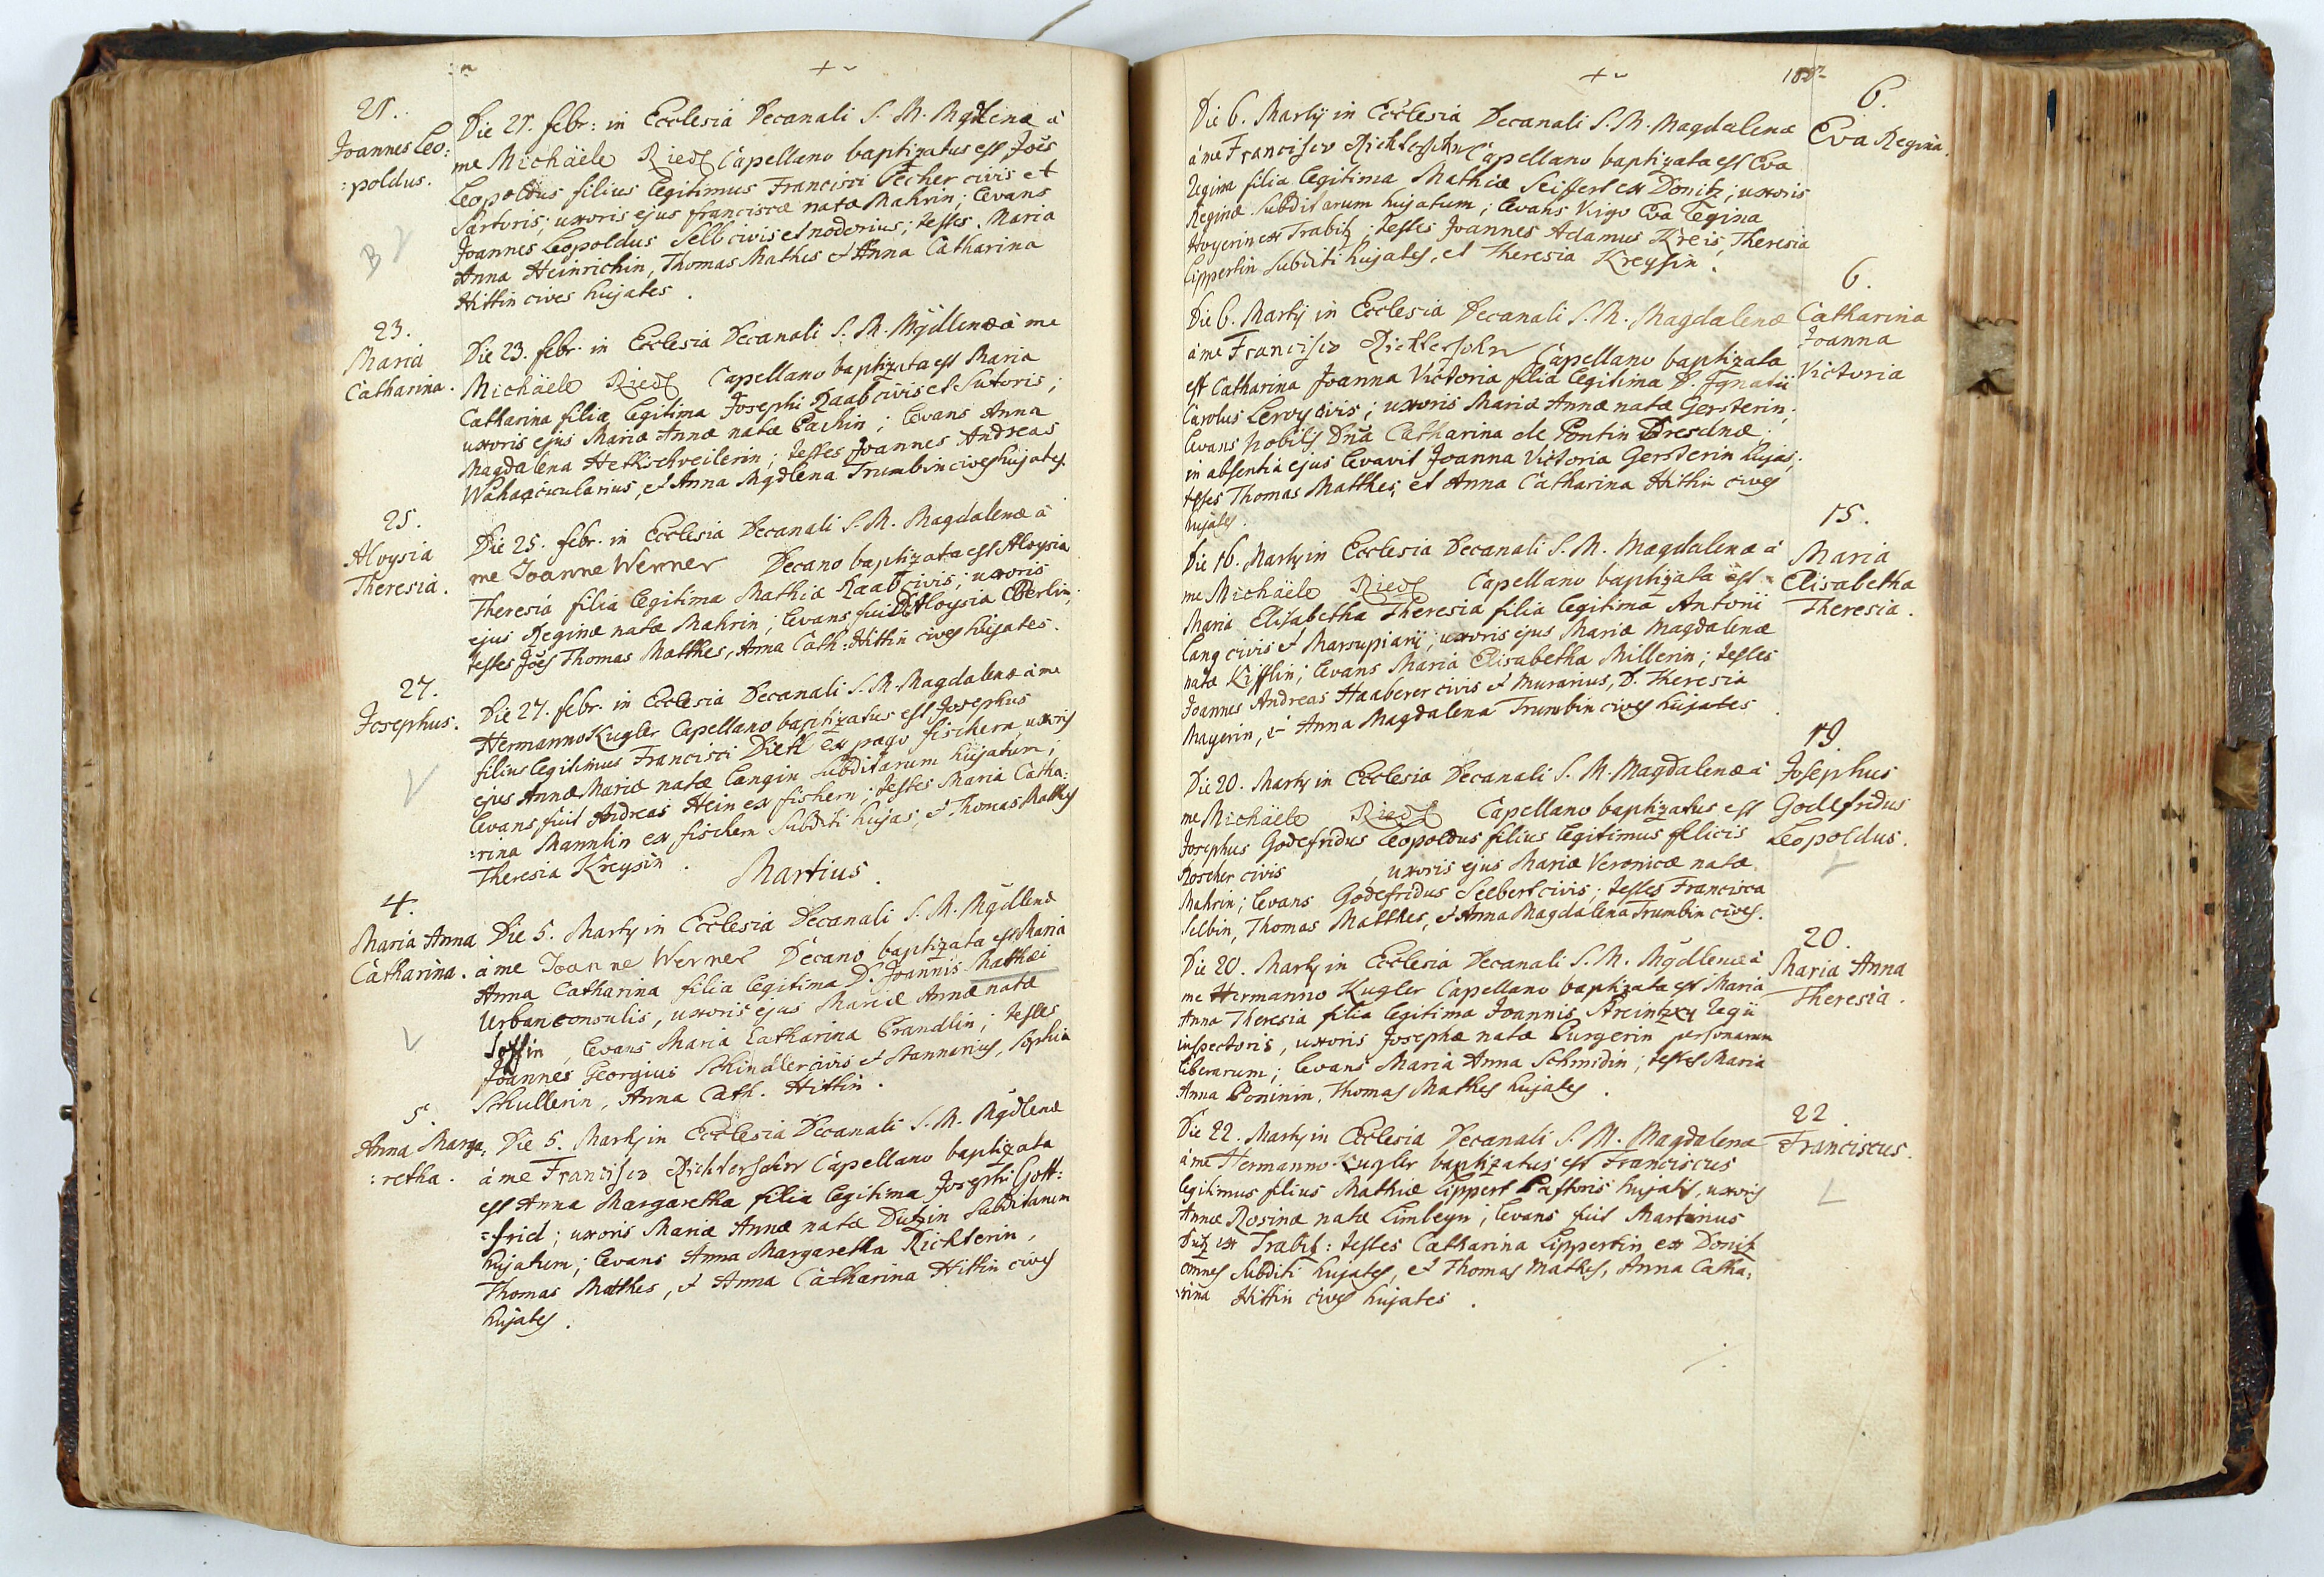 21.
Joannes Leo:
:poldus.
Die 21. febr: in Ecclesia Decanali S. M. Mgdlenæ à
me Michäele Riedl Capellano baptizatus est Joes
Leopoldus filius legitimus Francisci Pecher civis et
Sartoris; uxoris ejus franciscæ natæ Mahrin; levans
Joannes Leopoldus Selb civis et nodorius; testes Maria
Anna Heinrichin, Thomas Mathes et Anna Catharina
Hittin cives hujates.
23.
Maria
Catharina.
Die 23. febr. in Ecclesia Decanali S. M. Mgdlenæ à me
Michäele Riedl Capellano baptizata est Maria
Catharina filia legitima Josephi Raab civis et Sutoris;
uxoris ejus Mariæ Annæ natæ Pachin; levans Anna
Magdalena Hetkschveilerin; testes Joannes Andreas
et Anna Mgdlena Trumbin cives hujates.
25.
Aloysia
Theresia.
Die 25. febr. in Ecclesia Decanali S. M. Magdalenæ à
me Joanne Werner Decano baptizata est Aloysia
Theresia filia legitima Mathiæ Raab civis; uxoris
ejus Reginæ natæ Mahrin; levans fuit D. Aloysia Eberlin;
testes Joes Thomas Matthes, Anna Cath: Hittin cives hujates.
27.
Josephus.
Die 27. febr. in Ecclesia Decanali S. M. Magdalenæ à me
Hermanno Kugler Capellano baptizatus est Josephus
filius legitimus Francisci Dietl ex pago fischern, uxoris
ejus Annæ Mariæ natæ Langin Subditarum hujatum;
levans fuit Andreas Hein ex fischern; testes Maria Catha:
:rina Mannlin ex fischern Subditi hujas, et Thomas Mathes
Theresia Kreysin.
Martius.
4.
Maria Anna
Catharina.
Die 5. Martij in Ecclesia Decanali S. M. Mgdlenæ
à me Joanne Werner Decano baptizata est Maria
Anna Catharina filia legitima D. Joannis Matthæi
Urban consulis, uxoris ejus Mariæ Annæ natæ
levans Maria Catharina Brandlin; testes
Joannes Georgius Schindler civis et Stannarius, Sophia
Schullerin, Anna Cath. Hittin.
5.
Anna Marga:
:retha.
Die 5. Martij in Ecclesia Decanali S. M. Mgdlenæ
à me Francisco Richtersohn Capellano baptizata
est Anna Margaretha filia legitima Josephi Gott:
:frid; uxoris Mariæ Annæ natæ Dietzin Subditarum
hujatum; levans Anna Margaretha Richterin,
Thomas Mathes, et Anna Catharina Hittin cives
hujates.
6.
Eva Regina.
Die 6. Martij in Ecclesia Decanali S. M. Magdalenæ
à me Francisco Richtersohn Capellano baptizata est Eva
Regina filia legitima Mathiæ Seiffert ex Donitz; uxoris
Reginæ Subditarum hujatum; levans Virgo Eva Regina
Hoyerin ex Trabitz; testes Joannes Adamus Kreis, Theresia
Lippertin Subditi hujates, et Theresia Kreysin.
6.
Catharina
Joanna
Victoria
Die 6. Martij in Ecclesia Decanali S. M. Magdalenæ
à me Francisco Richtersohn Capellano baptizata
est Catharina Joanna Victoria filia legitima D. Ignatii
Carolus Leroy civis; uxoris Mariæ Annæ natæ Gersterin;
levans Nobilis Dna Catharina de Pontin Dresdnæ.
in absentia ejus levavit Joanna Victoria Gersterin hujas;
testes Thomas Matthes, et Anna Catharina Hittin cives
hujates.
15.
Maria
Elisabetha
Theresia.
Die 16. Martij in Ecclesia Decanali S. M. Magdalenæ à
me Michäele Riedl Capellano baptizata est
Maria Elisabetha Theresia filia legitima Antonii
Lang civis et Marsupiarij; uxoris ejus Mariæ Magdalenæ
natæ Kifflin; levans Maria Elisabetha Millerin; testes
Joannes Andreas Haaberer civis et Murarius, D. Theresia
Mayerin, et Anna Magdalena Trumbin cives hujates.
19.
Josephus
Godefridus
Leopoldus.
Die 20. Martij in Ecclesia Decanali S. M. Magdalenæ à
me Michäele Riedl Capellano baptizatus est
Josephus Godefridus Leopoldus filius legitimus felicis
Roscher civis, uxoris ejus Mariæ Veronicæ natæ
Mahrin; levans Godefridus Seelbert civis; testes Francisca
Selbin, Thomas Matthes, et Anna Magdalena Trumbin cives.
20.
Maria Anna
Theresia.
Die 20. Martij in Ecclesia Decanali S. M. Mgdlenæ à
me Hermanno Kugler Capellano baptizata est Maria
Anna Theresia filia legitima Joannis Regii
inspectoris, uxoris Josephæ natæ Purgerin personarum
liberarum; levans Maria Anna Schmidin; testes Maria
Anna Poninin, Thomas Mathes hujates.
22.
Franciscus.
Die 22. Martij in Ecclesia Decanali S. M. Magdalena
à me Hermanno Kugler baptizatus est Franciscus
legitimus filius Mathiæ Lippert Pastoris hujatis, uxoris
Annæ Rosinæ natæ Limbeyn; levans fuit Martinus
Dietz ex Trabitz: testes Catharina Lippertin ex Donitz
omnes Subditi hujates, et Thomas Mathes, Anna Catha:
:rina Hittin cives hujates.